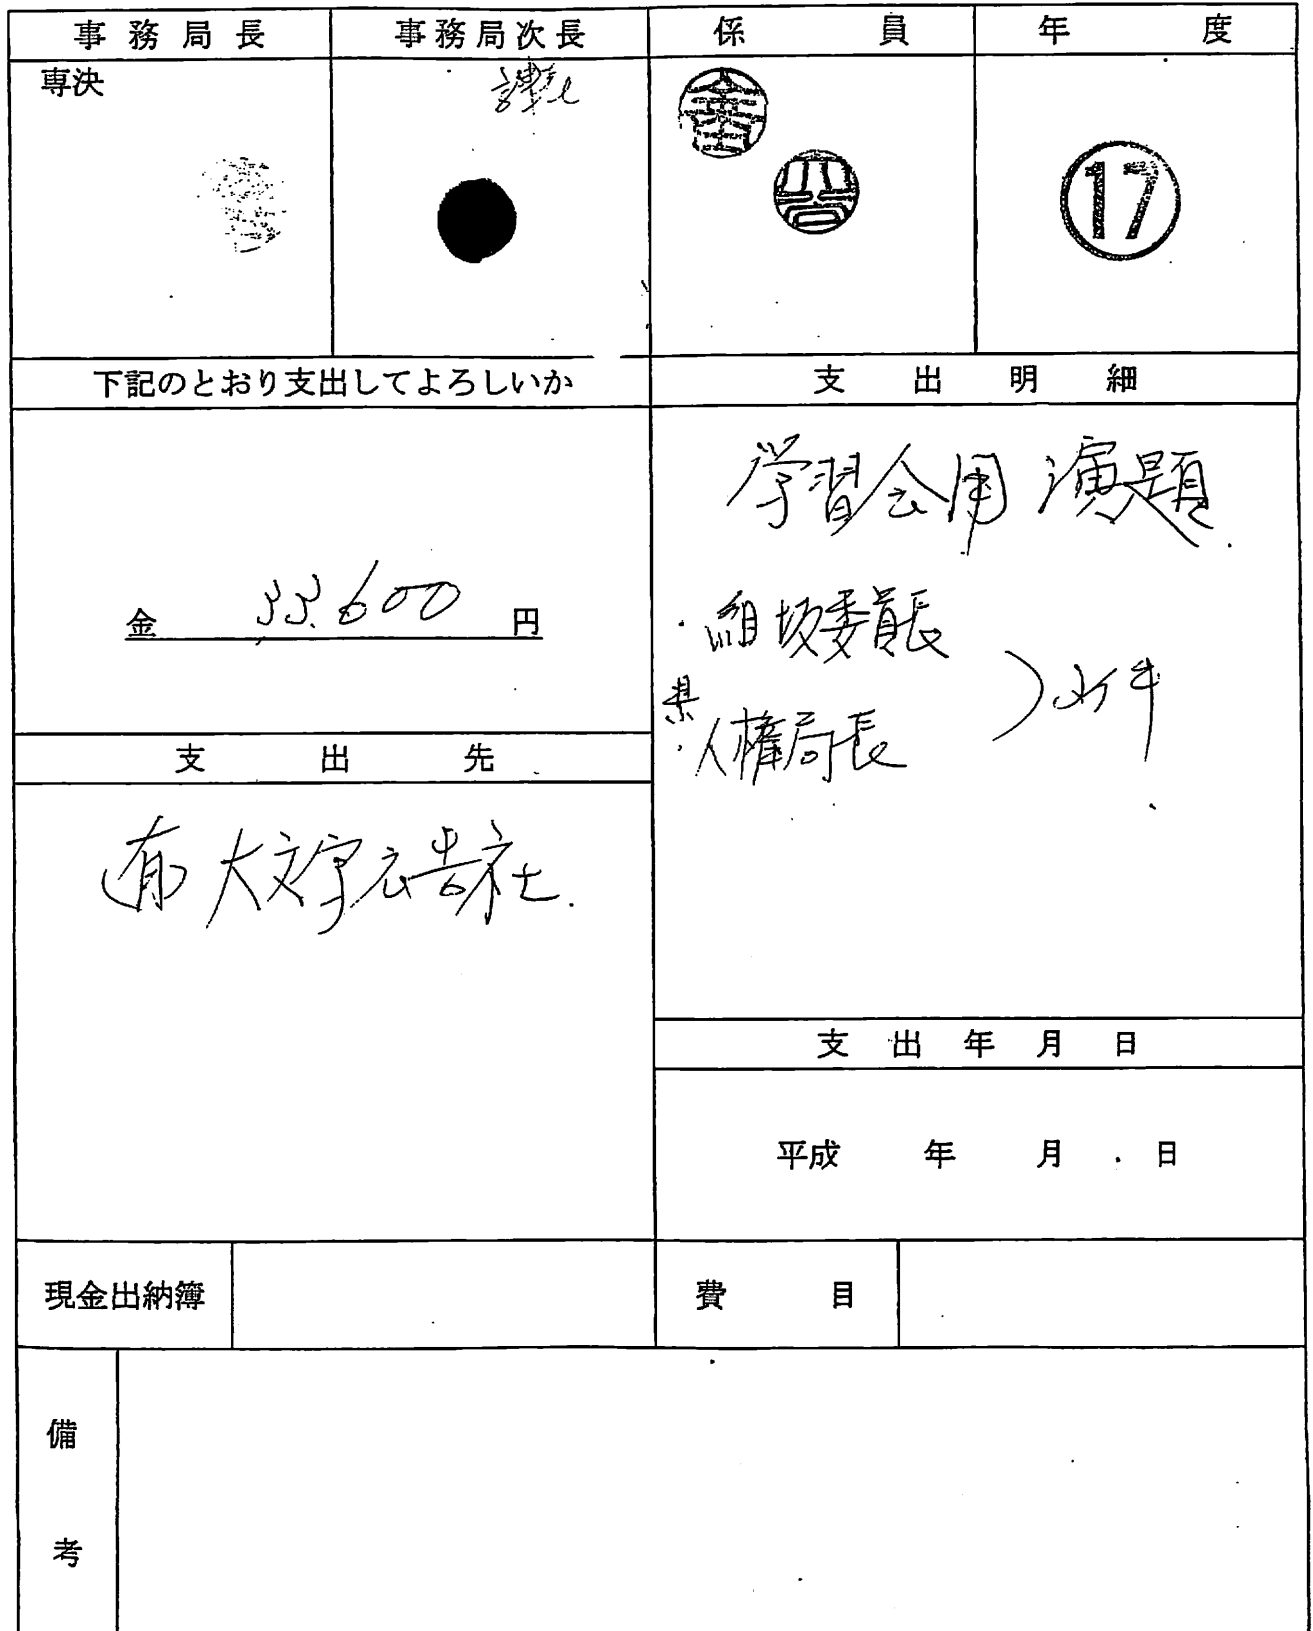 事務局長 事務局次長 係員 年度
専決
17
下記のとおり支出してよろしいか
金 33,600 円
支出先
(有) 大文字広告社.
支出明細
学習会用 演題
・組坂委員長
県
・人権局長
支出年月日
平成 年 月 日
現金出納簿
費目
備考